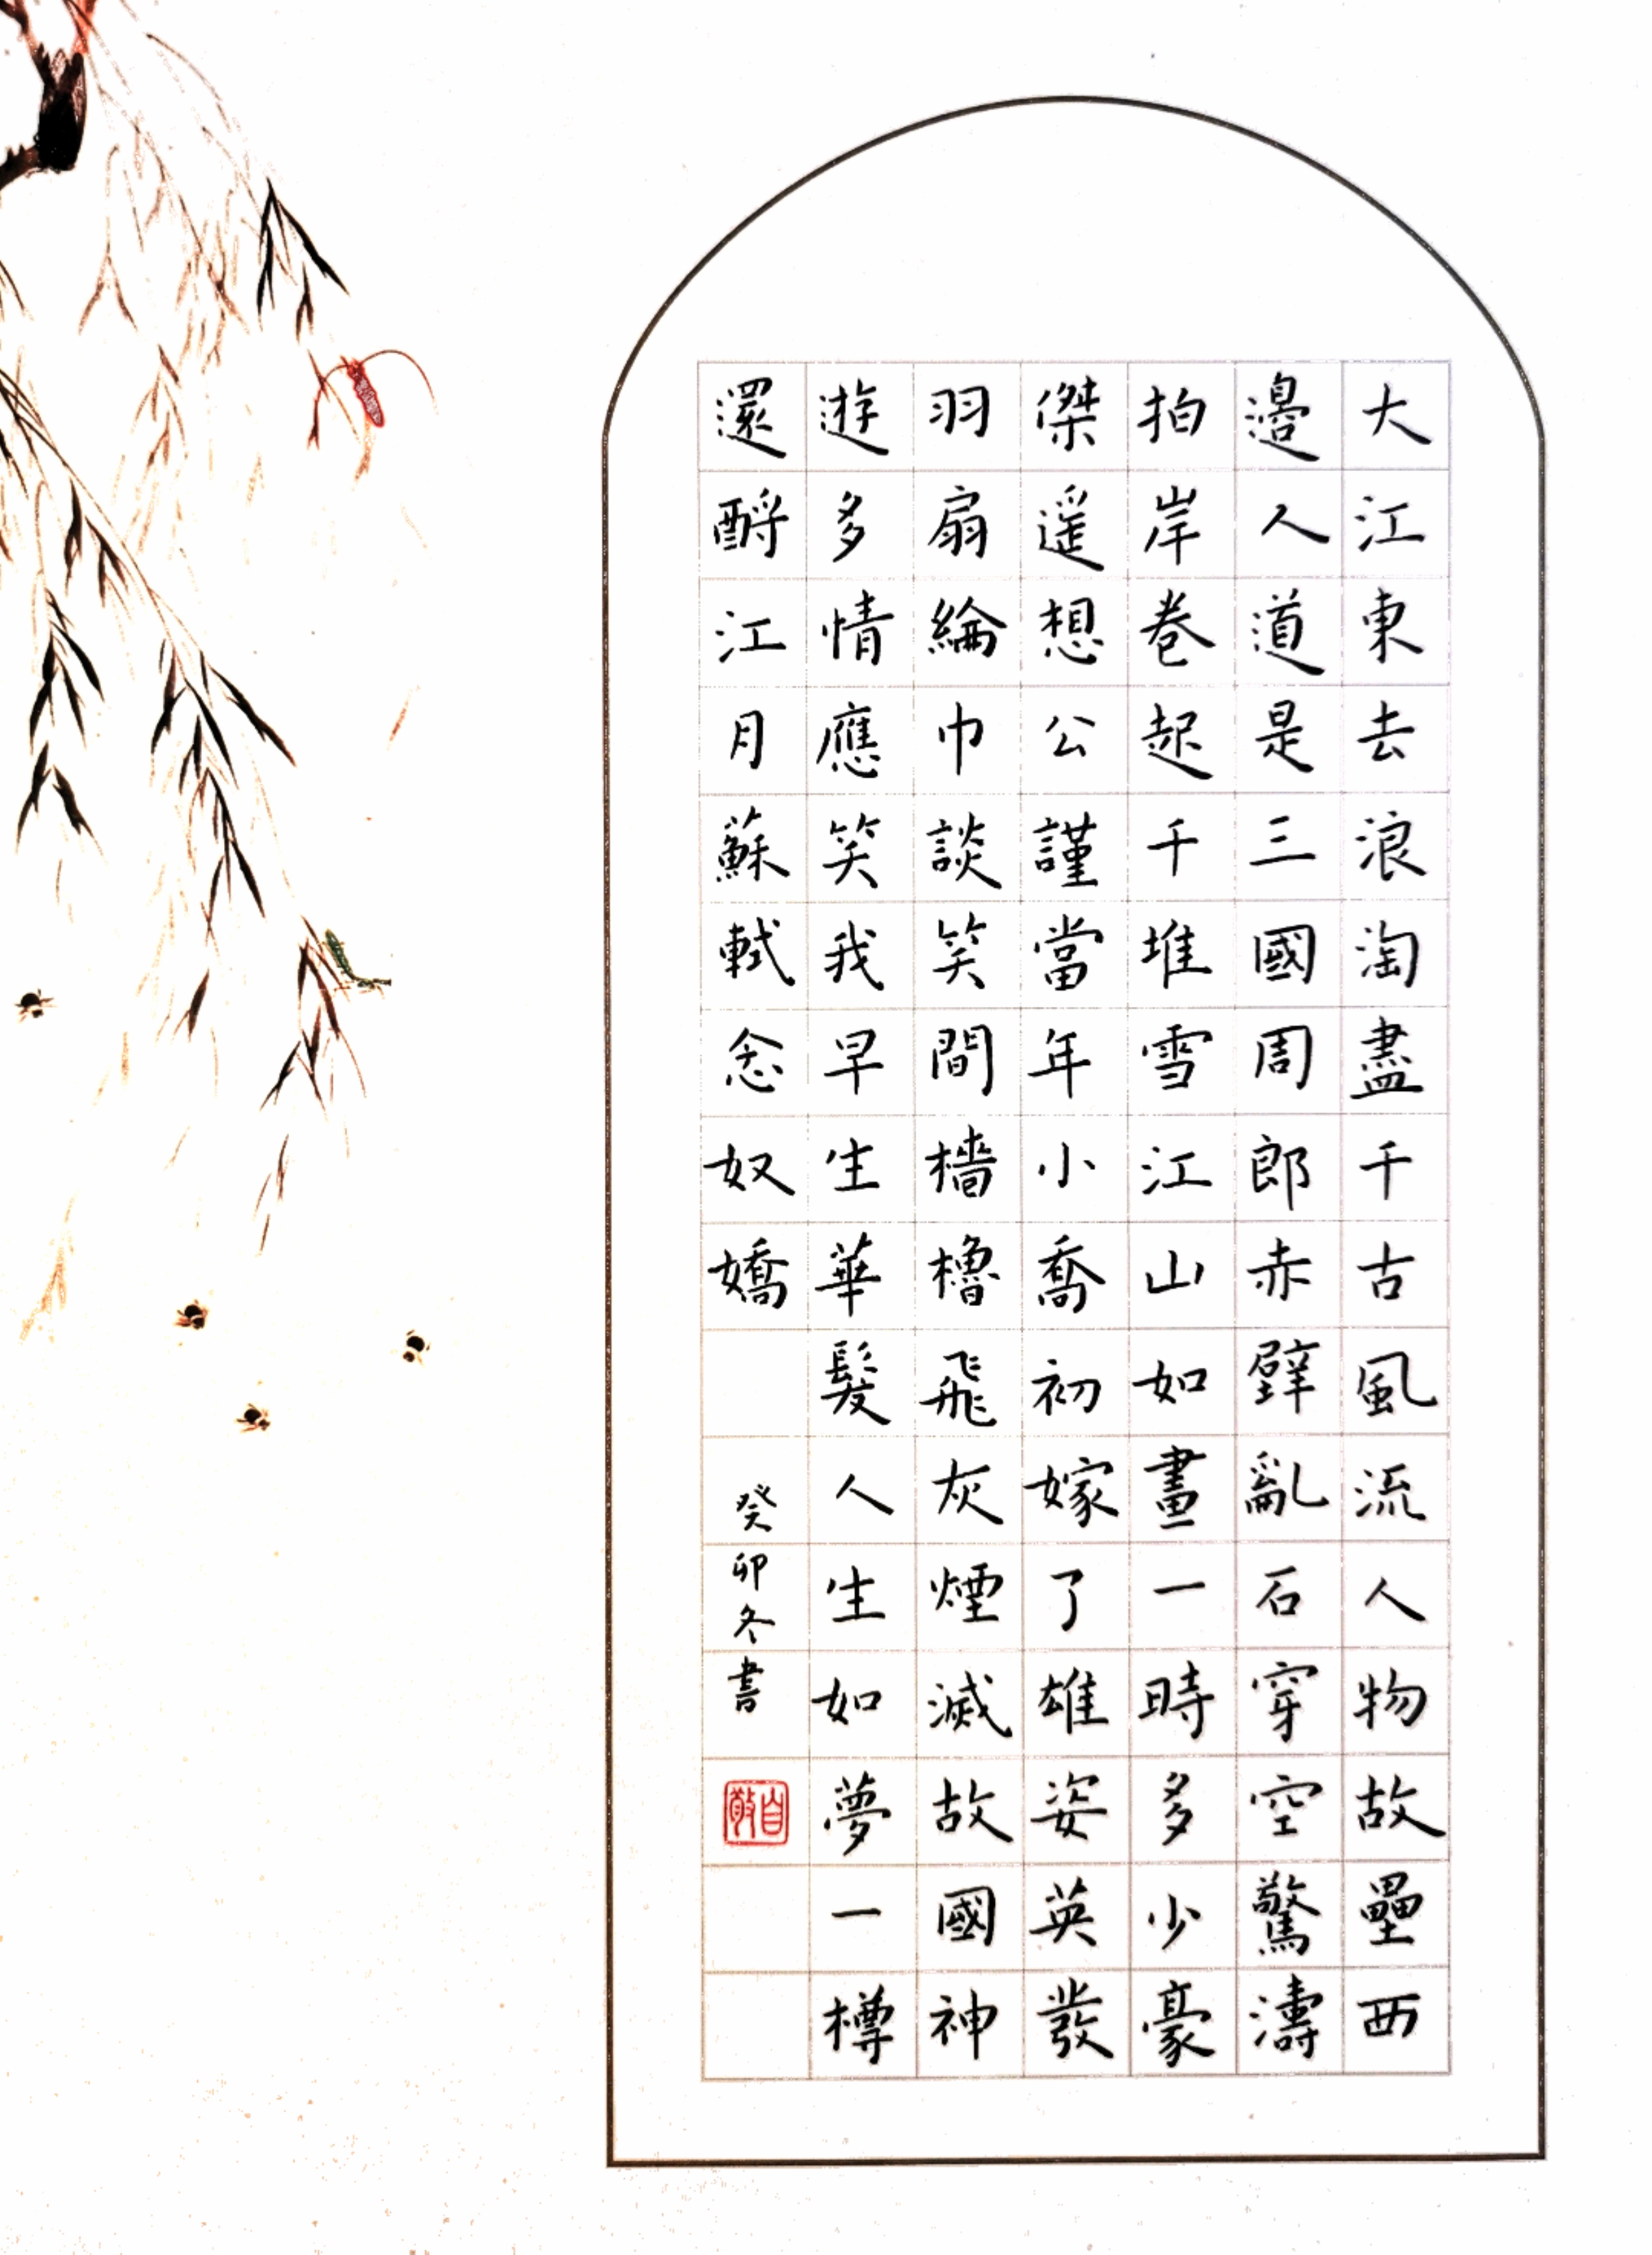 大江東去浪淘盡千古風流人物故壘西
邉人道是三國周郎赤壁亂石穿空驚濤
拍岸巻起千堆雪江山如畫一時多少豪
傑遥想公謹當年小喬初嫁了雄姿英發
羽扇綸巾談笑間檣櫓飛灰煙滅故國神
遊多情應笑我早生華髮人生如夢一樽
還酹江月蘇軾念奴嬌
癸卯冬書